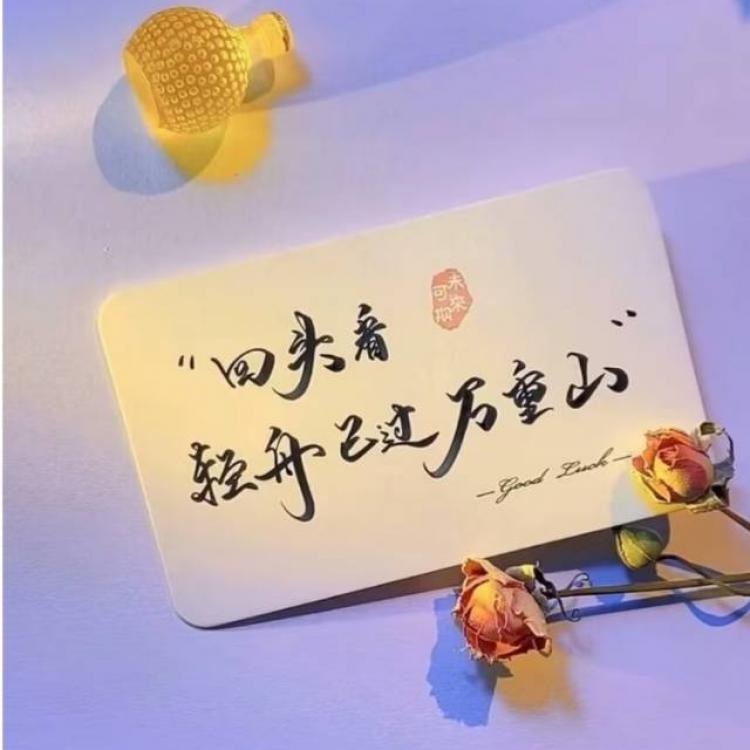 未来
可期
“回头看
轻舟已过万重山”
—Good Luck—